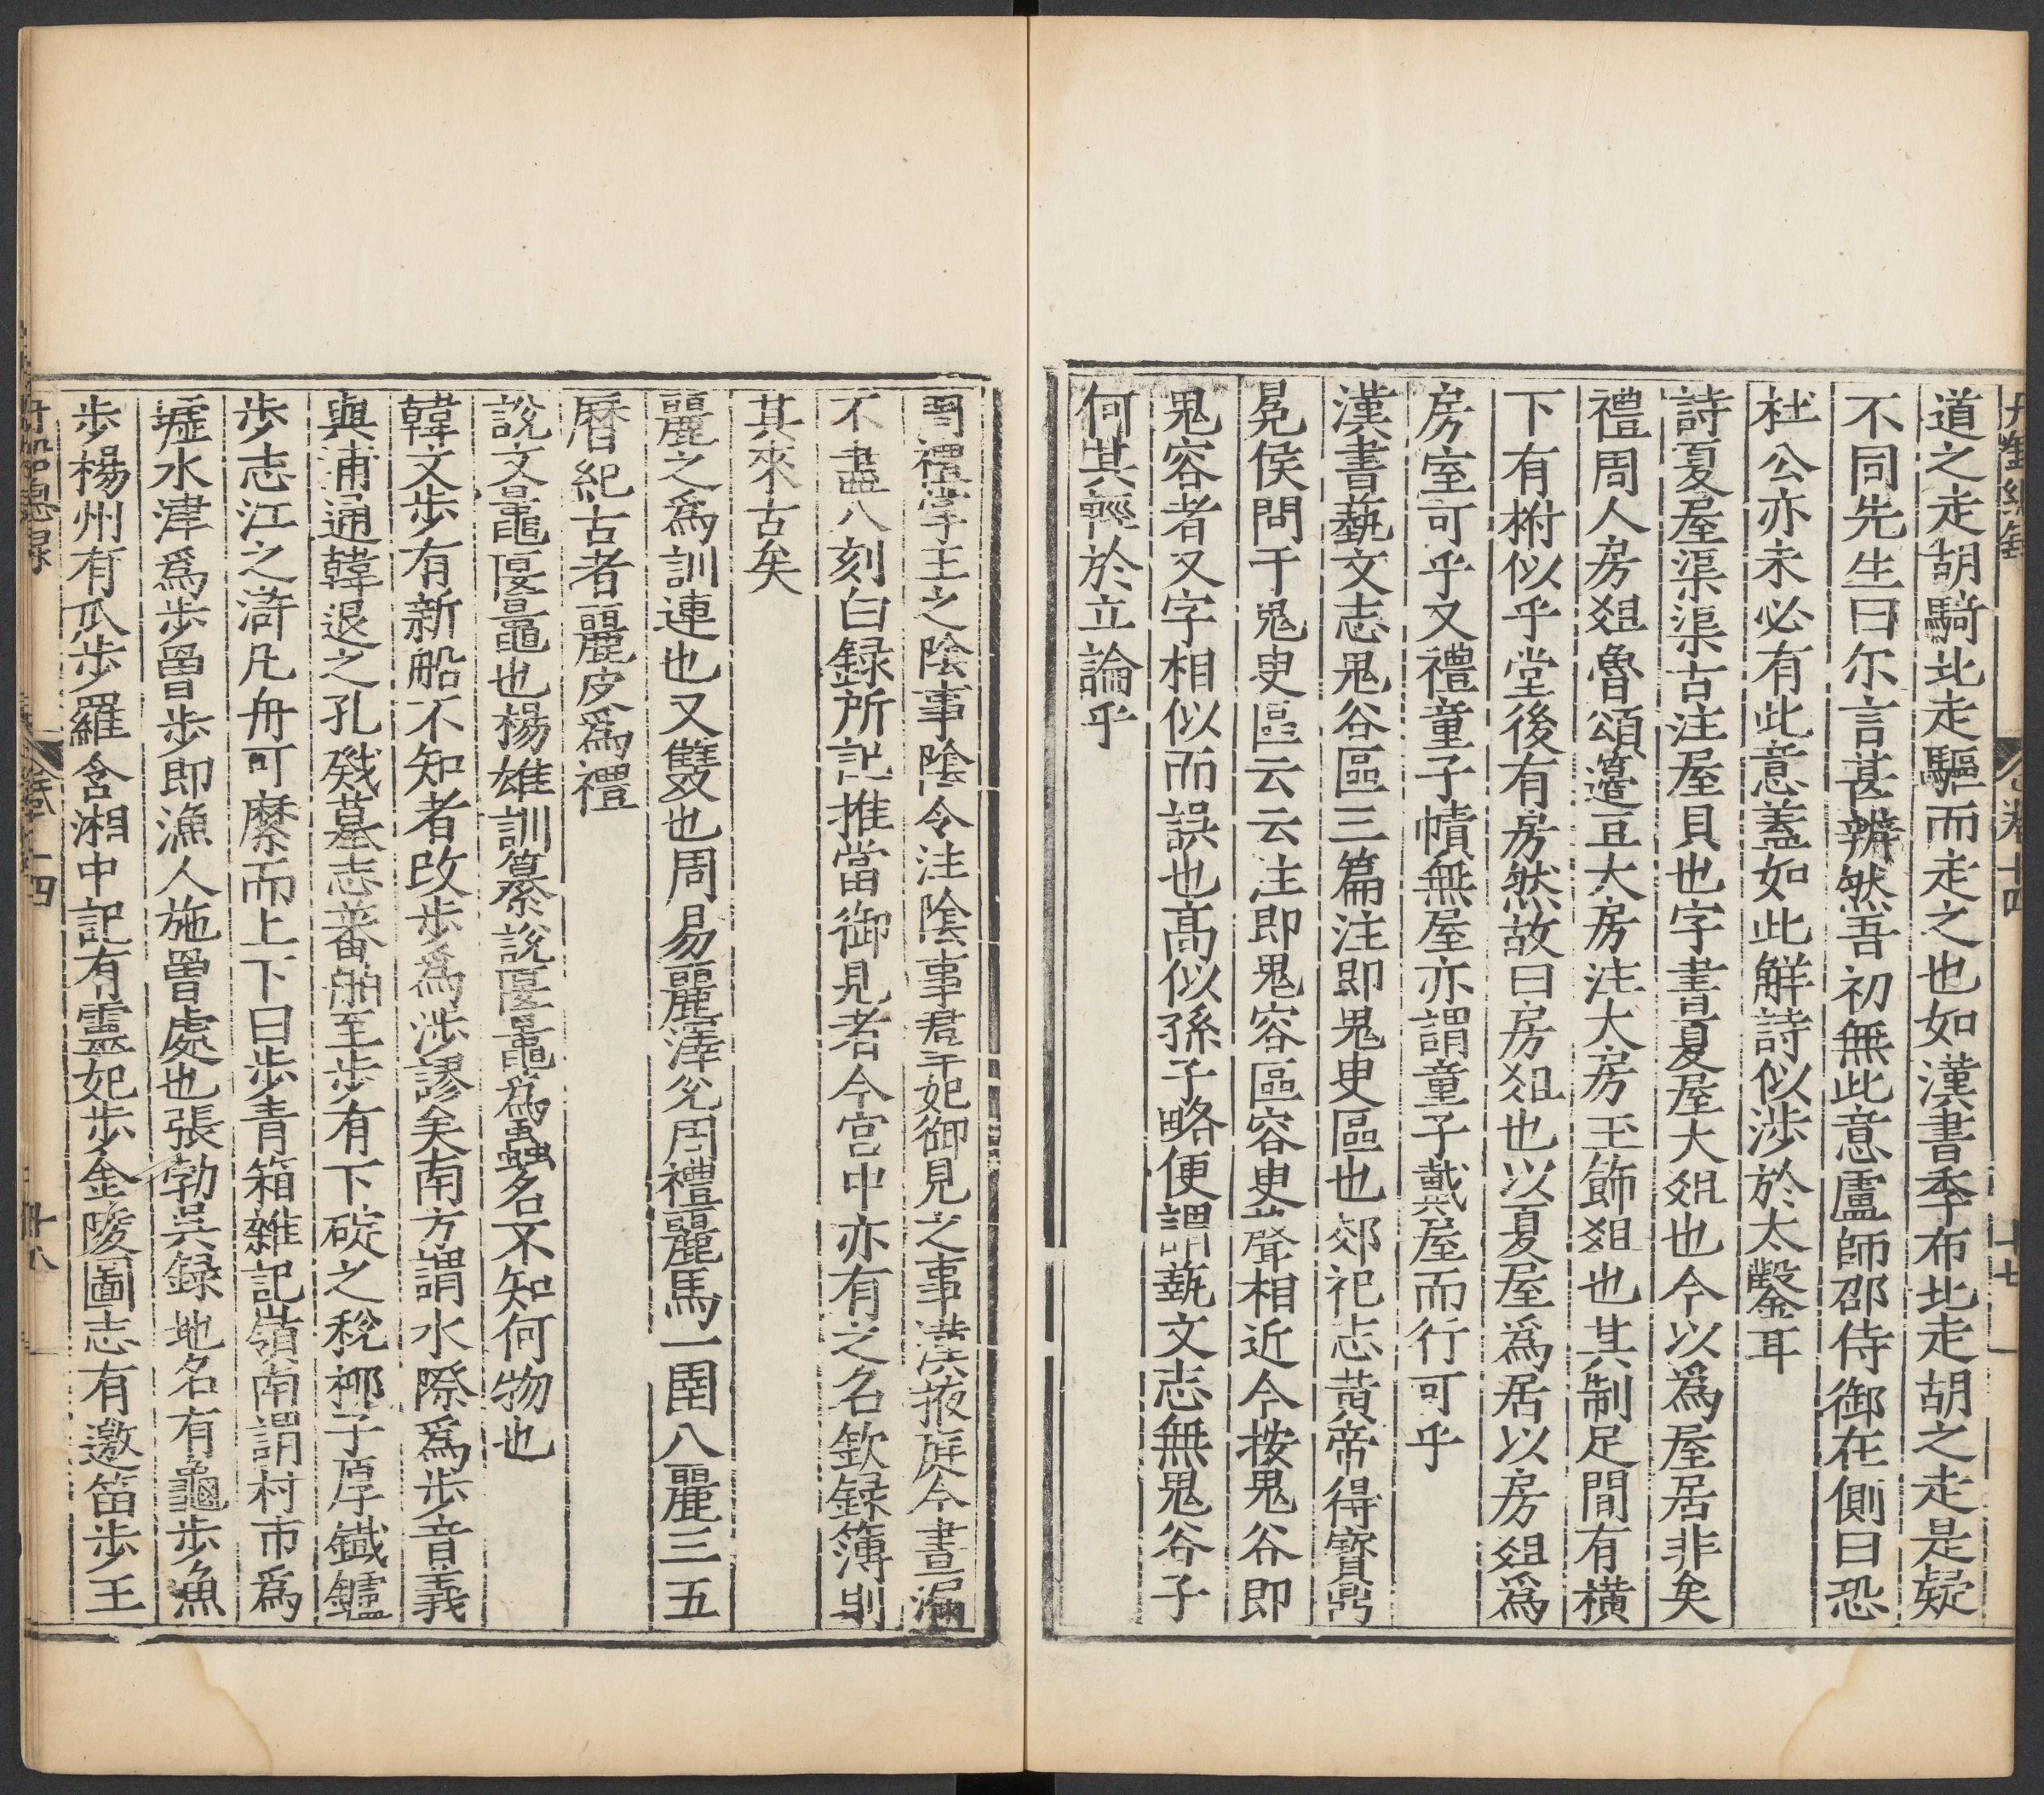 丹鉛總錄 卷十四 十七
道之走胡騎北走驅而走之也如漢書季布北走胡之走是疑
不同先生曰尔言甚辨然吾初無此意盧師邵侍御在側曰恐
杜公亦未必有此意蓋如此解詩似涉於太鑿耳
詩夏屋渠渠古注屋具也字書夏屋大俎也今以爲屋居非矣
禮周人房俎魯頌籩豆大房注大房玉飾俎也其制足間有橫
下有柎似乎堂後有房然故曰房俎也以夏屋爲居以房俎爲
房室可乎又禮童子幘無屋亦謂童子戴屋而行可乎
漢書藝文志鬼谷區三篇注即鬼臾區也郊祀志黃帝得寶鼎
冕侯問于鬼臾區云云注即鬼容區容臾聲相近今按鬼谷即
鬼容者又字相似而誤也高似孫子略便謂藝文志無鬼谷子
何其輕於立論乎
周禮掌王之陰事陰令注陰事君王妃御見之事漢掖庭令晝漏
不盡八刻白錄所記推當御見者今宮中亦有之名欽錄簿則
其來古矣
麗之爲訓連也又雙也周易麗澤兌周禮麗馬一圉八麗三五
曆紀古者麗皮爲禮
說文鼂匽鼂也楊雄訓纂說匽鼂爲蟲名不知何物也
韓文步有新船不知者改步爲涉謬矣南方謂水際爲步音義
與浦通韓退之孔戣墓志蕃舶至步有下碇之稅柳子厚鐵鑪
步志江之滸凡舟可縻而上下曰步青箱雜記嶺南謂村市爲
墟水津爲步罾步即漁人施罾處也張勃吳錄地名有龜步魚
步楊州有瓜步羅含湘中記有靈妃步金陵圖志有邀笛步王
丹鉛總錄 十四 十八